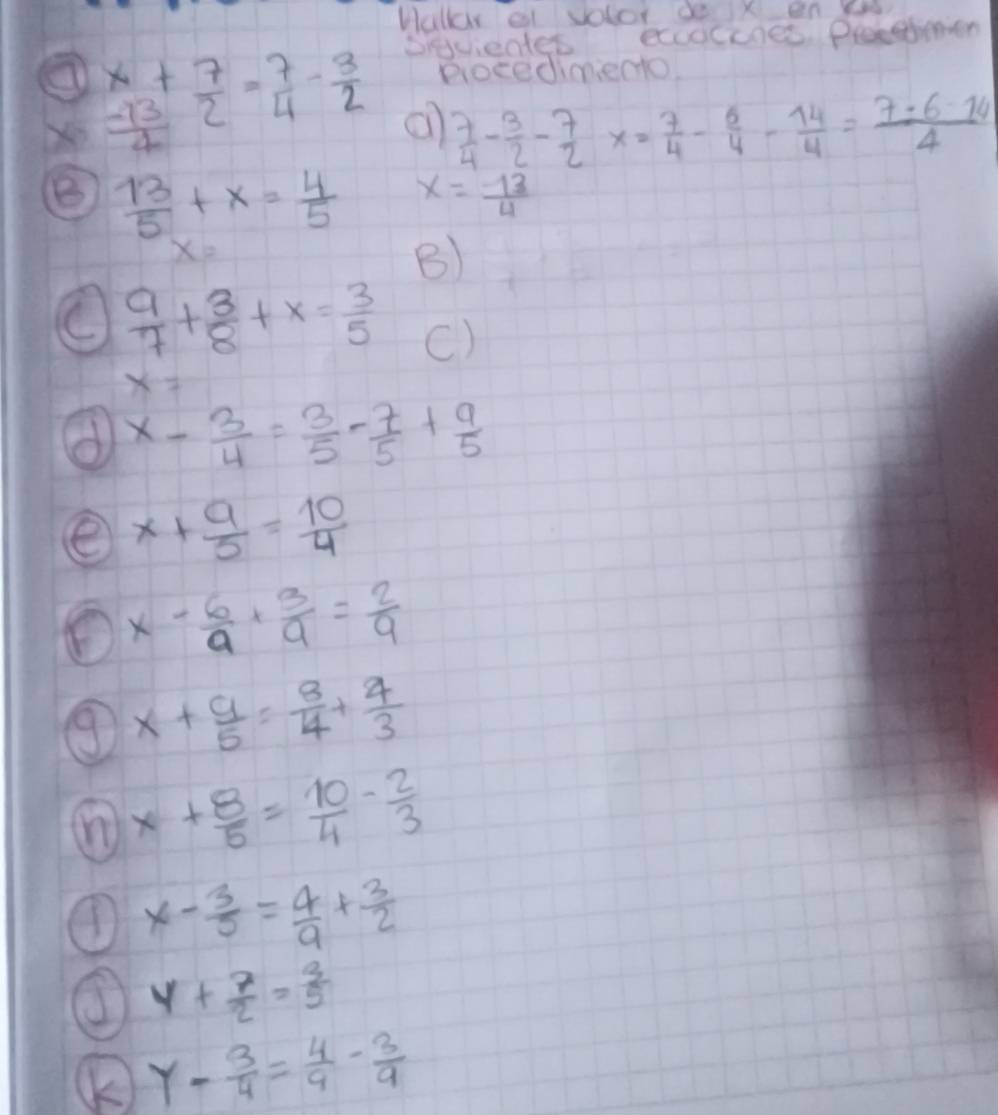 Hallar el valor de x en las
siguientes ecuaciones Procedimien
Procedimiento
a) x + 7/2 = 7/4 - 3/2
x = -13/4
a) 7/4 - 3/2 - 7/2 x = 7/4 - 6/4 - 14/4 = 7 - 6 - 14/4
x = -13/4
B) 13/5 + x = 4/5
x =
B)
C) 9/7 + 3/8 + x = 3/5
x =
C)
d) x - 3/4 = 3/5 - 7/5 + 9/5
e) x + 9/5 = 10/4
F) x - 6/9 + 3/9 = 2/9
g) x + 9/5 = 8/4 + 4/3
h) x + 8/5 = 10/4 - 2/3
i) x - 3/5 = 4/9 + 3/2
J) y + 7/2 = 3/5
K) y - 3/4 = 4/9 - 3/9